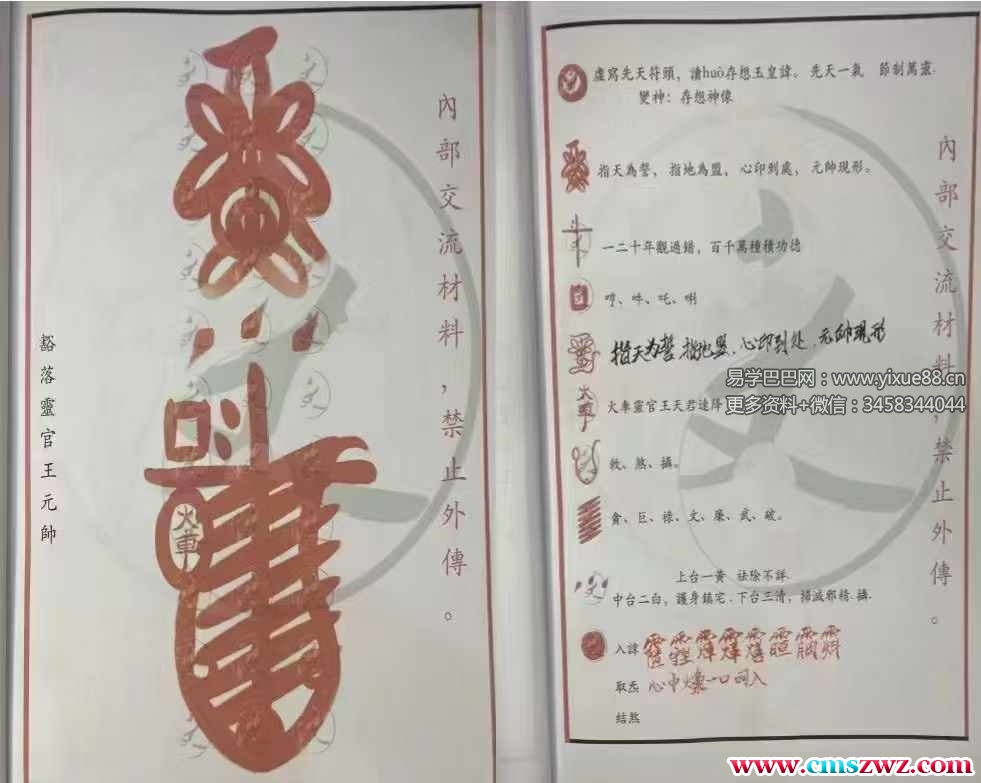 內部交流材料，禁止外傳。
豁落靈官王元帥
火車
虛寫先天符頭，讀huò存想玉皇諱。先天一氣　節制萬靈.
變神：存想神像
指天為誓，指地為盟，心印到處，元帥現形。
一二十年觀過錯，百千萬種積功德
指天为誓.指地盟.心印到处.元帥現形
火車靈官王天君速降
火車
敕、煞、攝。
貪、巨、祿、文、廉、武、破。
上台一黃　祛除不詳.
中台二白，護身鎮宅.下台三清，掃滅邪精.攝.
入諱
取炁 心中
結煞
內部交流材料，禁止外傳。
易学巴巴网：www.yixue88.cn
更多资料+微信：3458344044
www.cmszwz.com